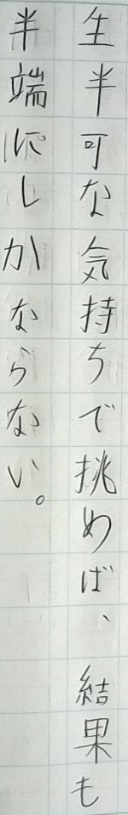 生半可な気持ちで挑めば、結果も
半端にしかならない。